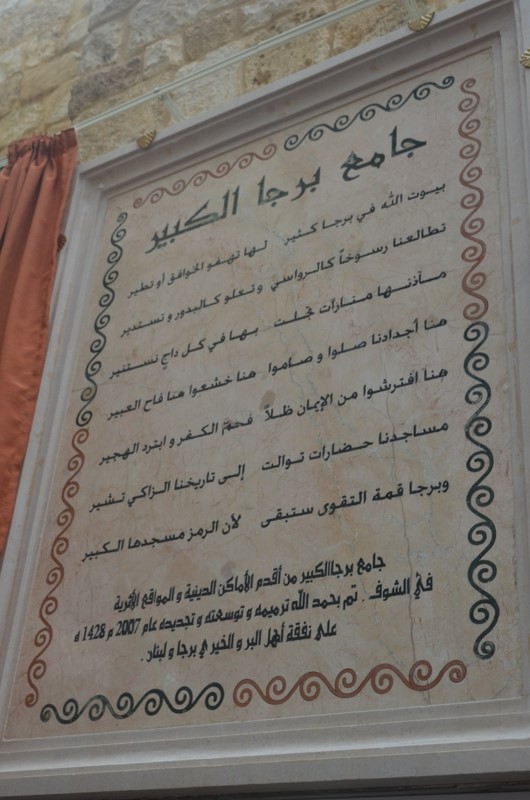 جامع برجا الكبير
بيوت الله في برجا كثير لها تهفو الخوافق أو تطير
تطالعنا رسوخاً كالرواسي وتعلو كالبدور و تستدير
مآذنها منارات تجلت بها في كل داجٍ نستنير
هنا أجدادنا صلوا و صاموا هنا خشعوا هنا فاح العبير
هنا افترشوا من الإيمان ظلاً فحمّ الكفر و ابترد الهجير
مساجدنا حضارات توالت إلى تاريخنا الزاكي تشير
وبرجا قمة التقوى ستبقى لأن الرمز مسجدها الكبير
جامع برجاالكبير من أقدم الأماكن الدينية و المواقع الأثرية
في الشوف . تم بحمد الله ترميمه و توسعته و تجديده عام 2007 م 1428 ه
على نفقة أهل البر و الخير في برجا و لبنان .